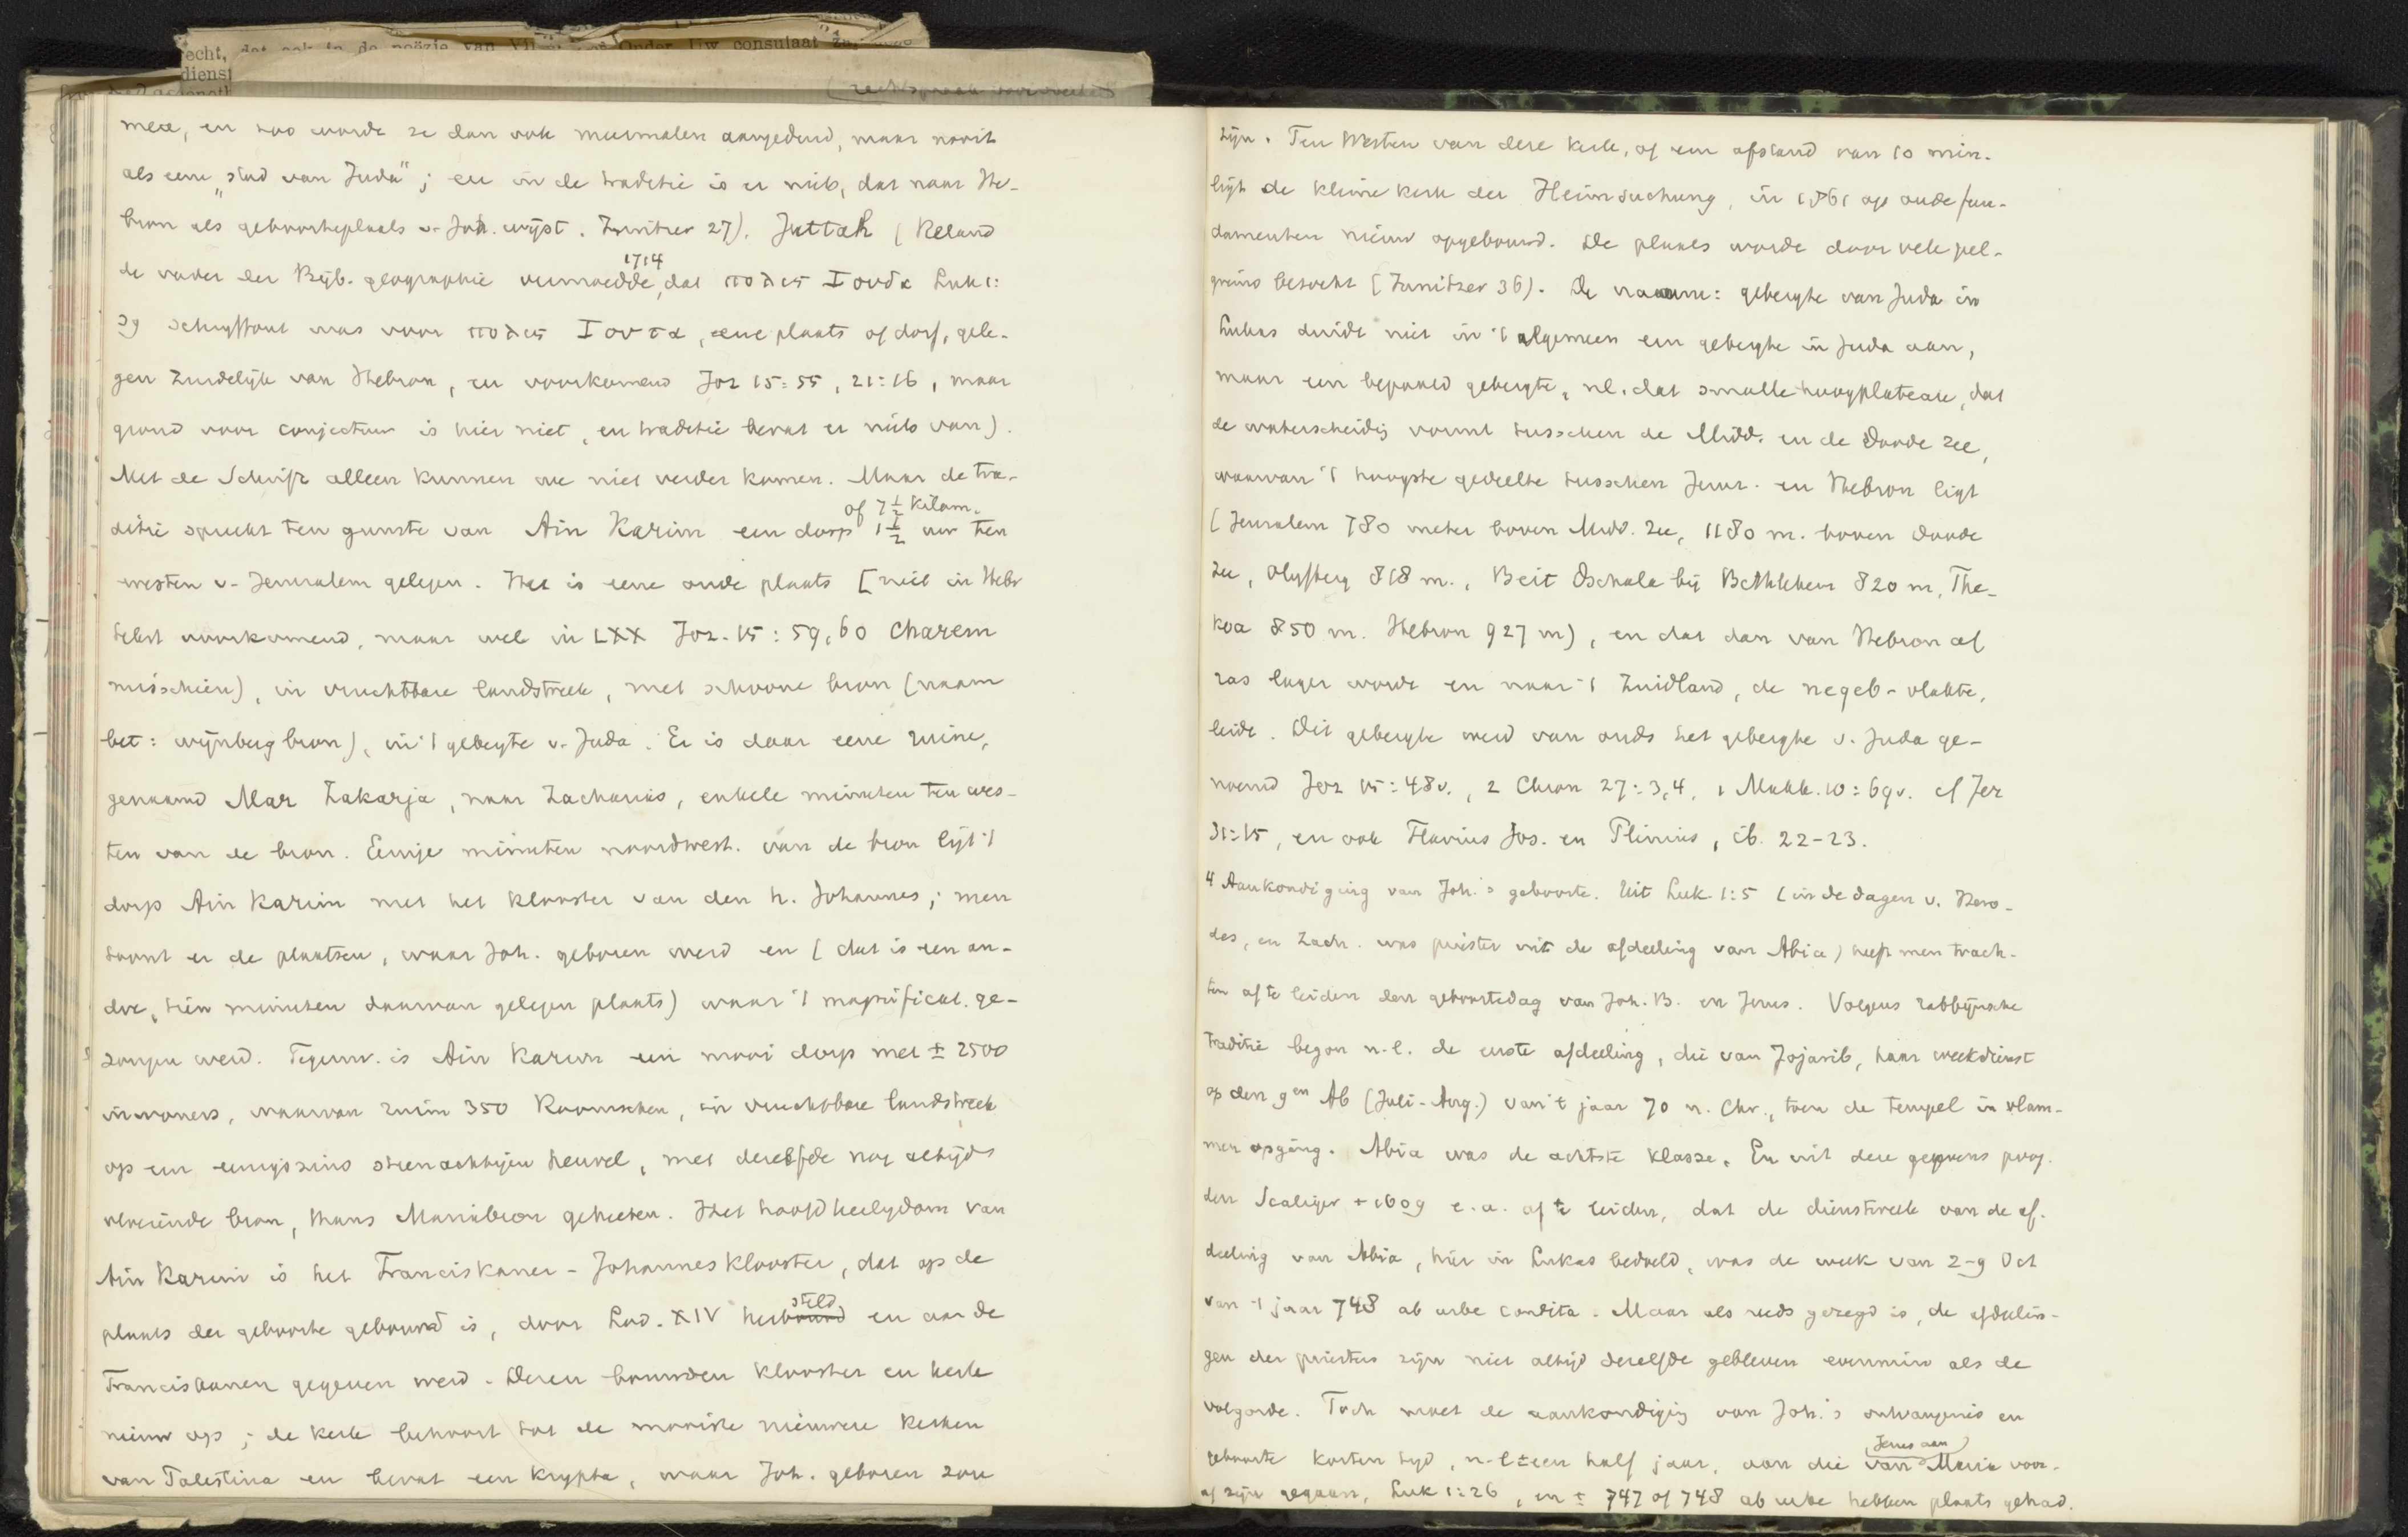 recht, dat ook in de poëzie van Onder Uw consulaat
dienst
mee, en zoo wordt ze dan ook meermalen aangeduid, maar nooit
als eene „stad van Juda"; en in de traditie is er niets, dat naar He-
bron als geboorteplaats v. Joh. wijst. Zanitzer 27). Juttah (Reland
de vader der Bijb. geographie vermoedde, 1714 dat πολις Ιουδα Luk 1:
39 schrijffout was voor πολις Ιουτα, eene plaats of dorp, gele-
gen zuidelijk van Hebron, en voorkomend Joz 15:55, 21:16, maar
grond voor conjectuur is hier niet, en traditie bevat er niets van).
Met de Schrift alleen kunnen we niet verder komen. Maar de tra-
ditie spreekt ten gunste van Ain Karim een dorp 1½ uur of 7½ kilom. ten
westen v. Jeruzalem gelegen. Het is eene oude plaats [niet in Hebr
tekst voorkomend, maar wel in LXX Joz. 15:59,60 Charem
misschien), in vruchtbare landstreek, met schoone bron (naam
bet: wijnberg bron), in 't gebergte v. Juda. Er is daar eene ruine,
genaamd Mar Zakarja, naar Zacharias, enkele minuten ten wes-
ten van de bron. Eenige minuten noordwest. van de bron ligt 't
dorp Ain Karim met het klooster van den h. Johannes; men
toont er de plaatsen, waar Joh. geboren werd en (dat is een an-
dre, tien minuten daarvan gelegen plaats) waar 't magnificat. ge-
zongen werd. Tegenw. is Ain Karim een mooi dorp met ± 2500
inwoners, waarvan ruim 350 Roomschen, in vruchtbare landstreek
op een eenigszins steenachtigen heuvel, met dezelfde nog altijd
vloeiende bron, thans Mariabron geheeten. Het hoofdheiligdom van
Ain Karim is het Franciskaner-Johannesklooster, dat op de
plaats der geboorte gebouwd is, door Lod. XIV herbouwd steld en aan de
Franciskanen gegeven werd. Dezen bouwden klooster en kerk
nieuw op; de kerk behoort tot de mooiste nieuwere kerken
van Palestina en bevat een krypta, waar Joh. geboren zou
zijn. Ten Westen van deze kerk, op een afstand van 10 min.
ligt de kleine kerk der Heimsuchung, in 1861 op oude fun-
damenten nieuw opgebouwd. De plaats wordt door vele pel-
grims bezocht (Zanitzer 36). De naam: gebergte van Juda in
Lukas duidt niet in 't algemeen een gebergte in Juda aan,
maar een bepaald gebergte, nl. dat smalle hoogplateau, dat
de waterscheidig vormt tusschen de Midd. en de Doode zee,
waarvan 't hoogste gedeelte tusschen Jeruz. en Hebron ligt
(Jeruzalem 780 meter boven Midd. zee, 1180 m. boven Doode
zee, Olijfberg 818 m., Beit Dschala bij Bethlehem 820 m, The-
koa 850 m. Hebron 927 m), en dat dan van Hebron af
ras lager wordt en naar 't Zuidland, de negeb-vlakte,
leidt. Dit gebergte werd van ouds het gebergte v. Juda ge-
noemd Joz 15:48v., 2 Chron 27:3,4, 1 Makk. 10:69v. cf Jer
31:15, en ook Flavius Jos. en Plinius, ib. 22-23.
4 Aankondiging van Joh.'s geboorte. Uit Luk 1:5 (in de dagen v. Hero-
des, en Zach. was priester uit de afdeeling van Abia) heeft men trach-
ten af te leiden den geboortedag van Joh. B. en Jezus. Volgens rabbijnsche
traditie begon n.l. de eerste afdeeling, die van Jojarib, haar weekdienst
op den 9en Ab (Juli-Aug.) van 't jaar 70 n. Chr., toen de tempel in vlam-
men opging. Abia was de achtste klasse. En uit deze gegevens poog.
den Scaliger † 1609 e.a. af te leiden, dat de dienstweek van de af.
deeling van Abia, hier in Lukas bedoeld, was de week van 2-9 Oct
van 't jaar 748 ab urbe condita. Maar als reeds gezegd is, de afdeelin-
gen der priesters zijn niet altijd dezelfde gebleven evenmin als de
volgorde. Toch moet de aankondigig van Joh.'s ontvangenis en
geboorte korten tijd, n.l. ± een half jaar, aan die van Jezus aan Maria voor-
af zijn gegaan, Luk 1:26, en ± 747 of 748 ab urbe hebben plaats gehad.